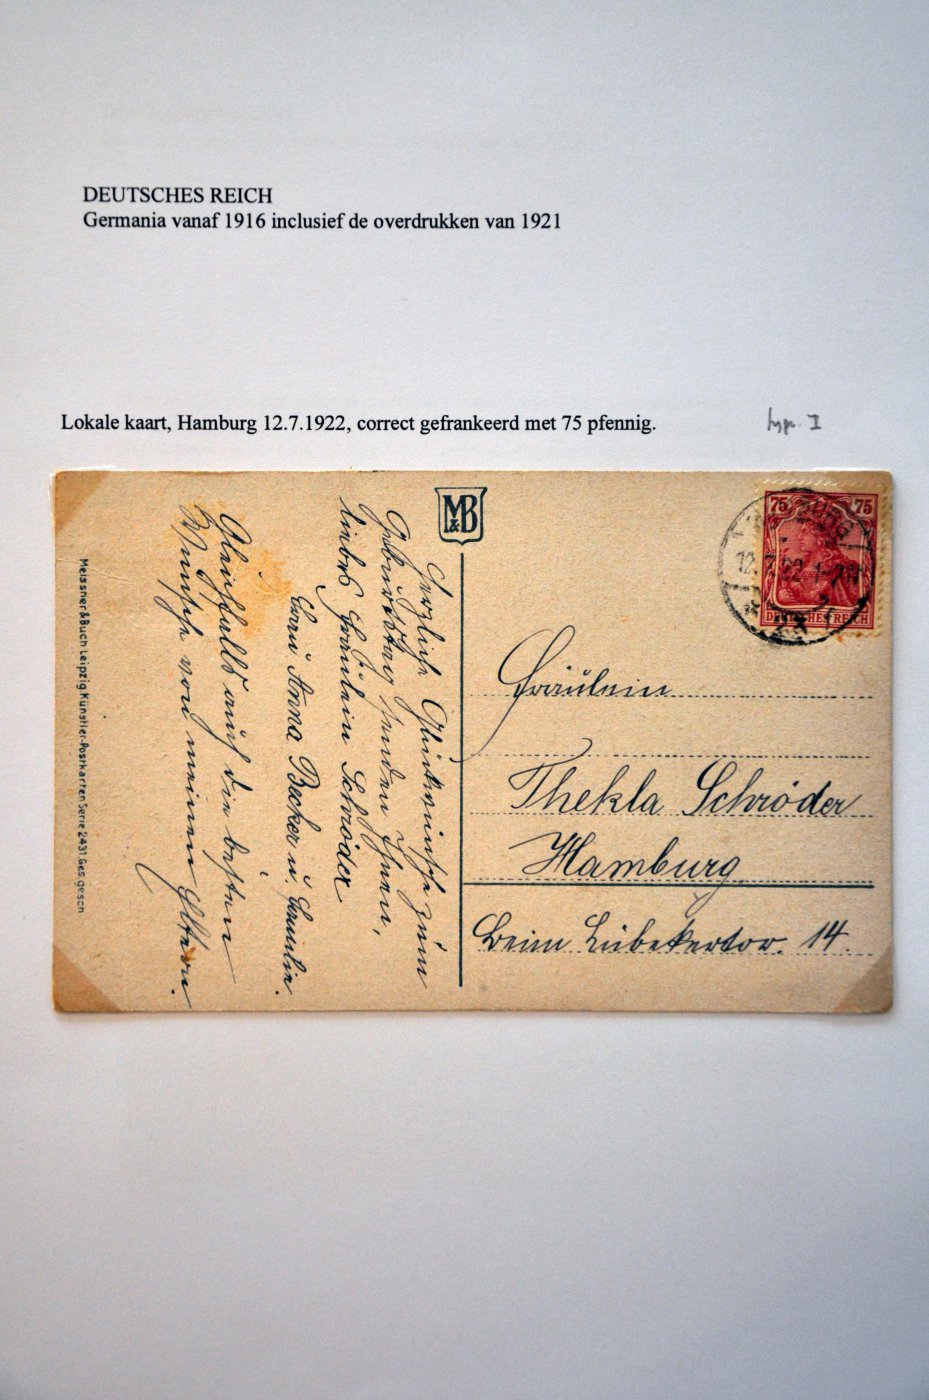 DEUTSCHES REICH
Germania vanaf 1916 inclusief de overdrukken van 1921
Lokale kaart, Hamburg 12.7.1922, correct gefrankeerd met 75 pfennig.
type I
M&B
75 75
DEUTSCHES REICH
12.7.22
Fräulein
Thekla Schröder
Hamburg
Beim Lübekertor. 14.
Herzliche Glückwünsche zum
Geburtstag senden Ihnen,
liebes Fräulein Schröder
Frau Anna Becker u. Familie.
Gleichfalls auch die besten
Wünsche von meinen Eltern.
Meissner & Buch Leipzig Künstler-Postkarten Serie 2431 Ges. gesch